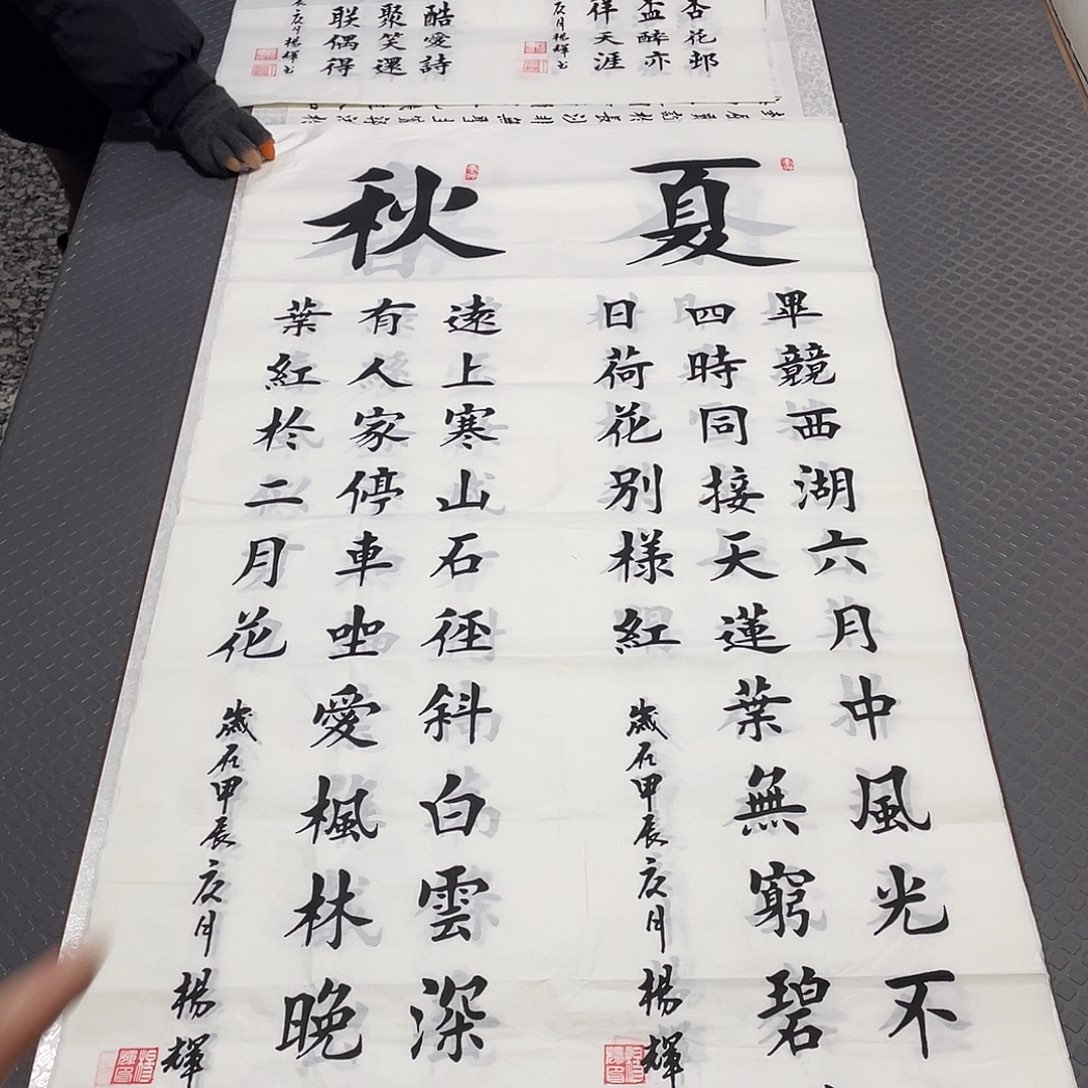 杏花邨
盃醉亦
祥天涯
庚月楊輝书
酷愛詩
聚笑還
联偶得
庚月楊輝书
夏
畢競西湖六月中風光不
四時同接天蓮葉無窮碧
日荷花別樣紅
歲在甲辰庚月楊輝
秋
遠上寒山石徑斜白雲深
有人家停車坐愛楓林晚
葉紅扵二月花
歲在甲辰庚月楊輝